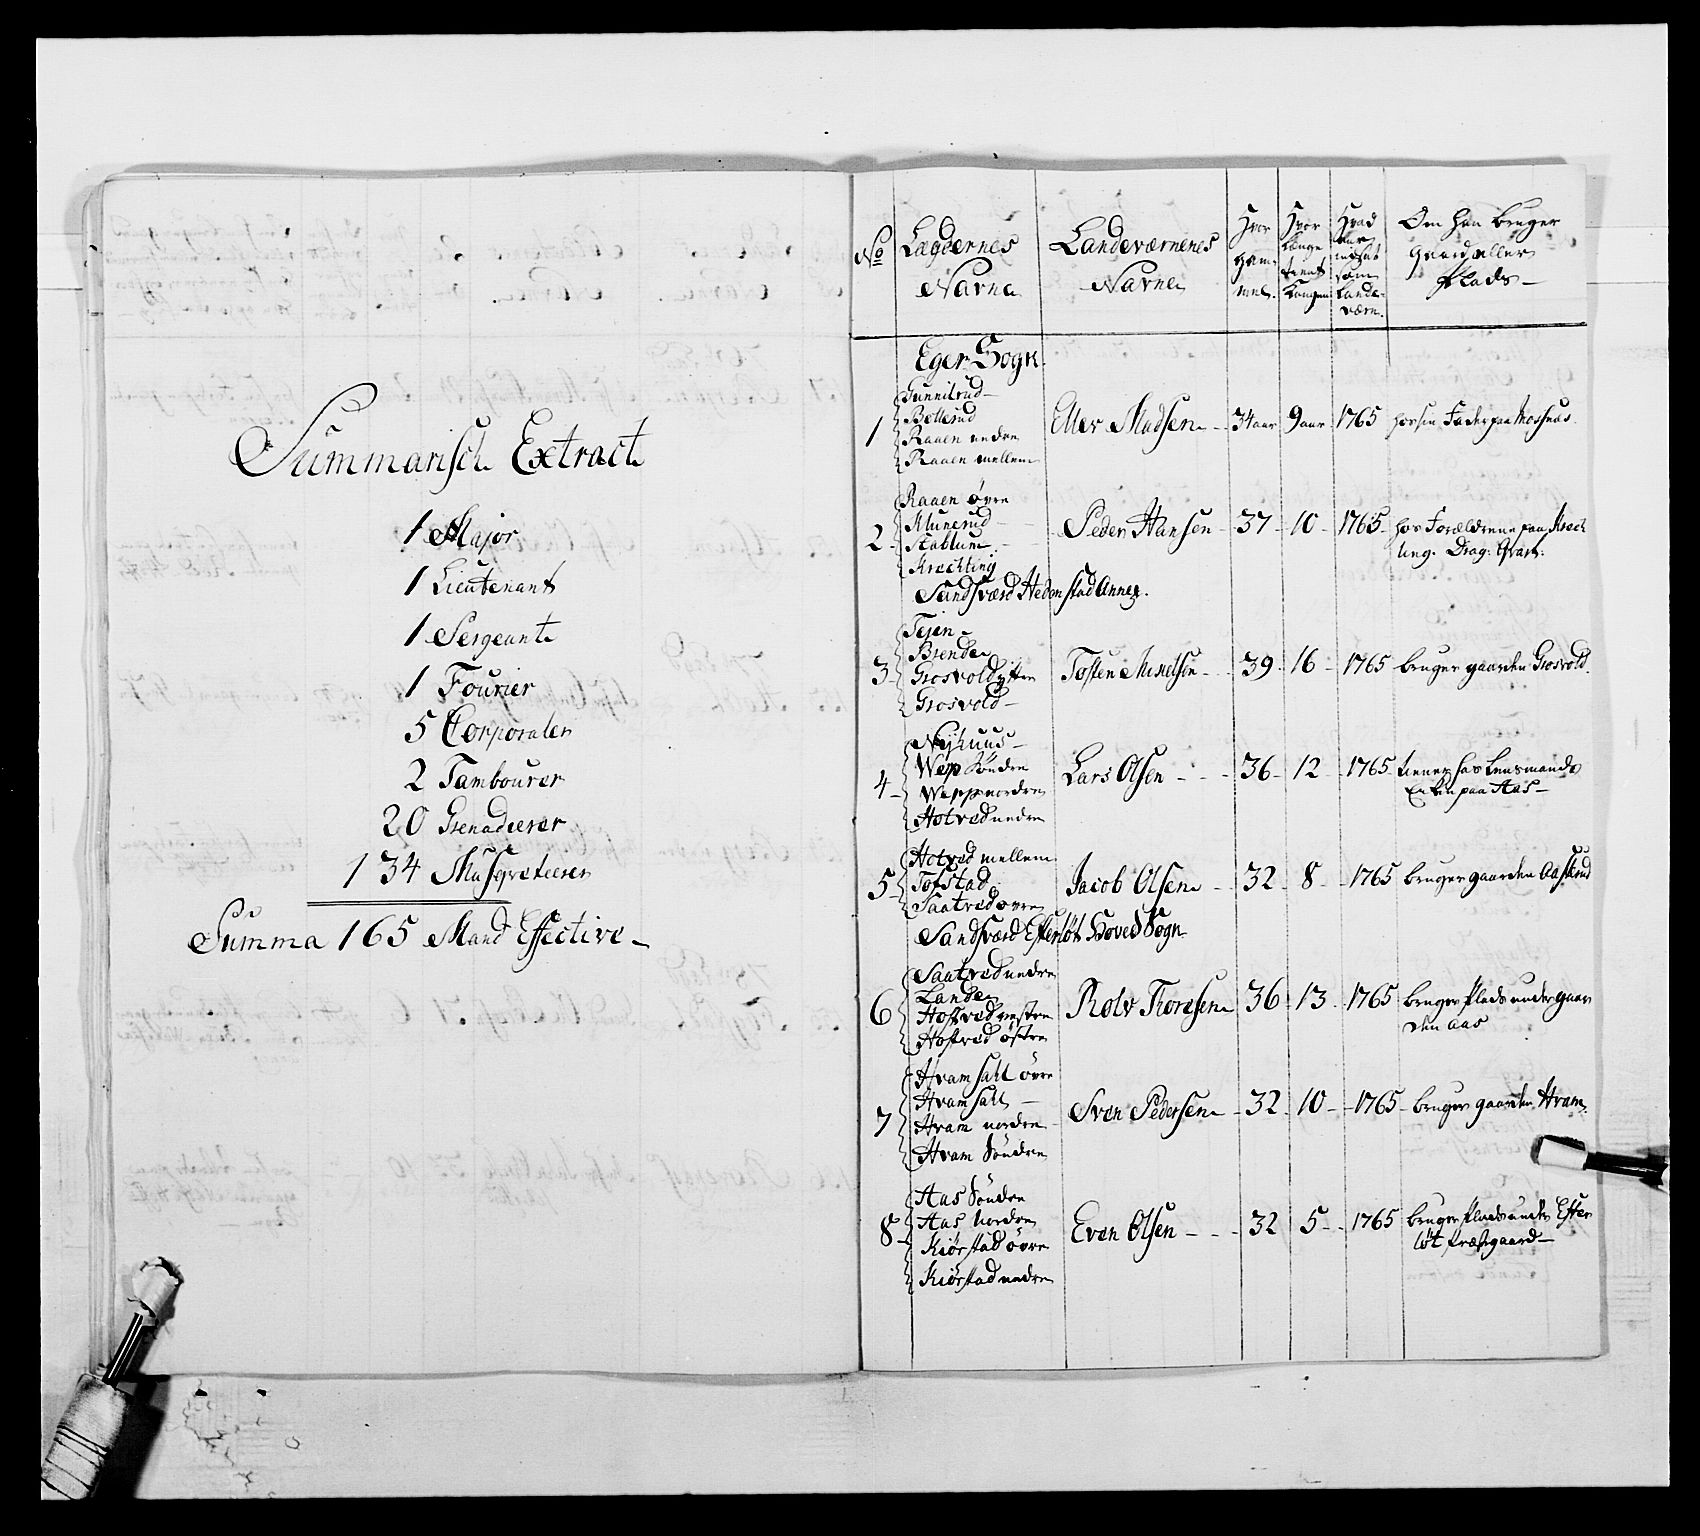 Summarisch Extract
1 Major
1 Lieutenant
1 Sergeant
1 Fourier
5 Corporaler
2 Tambourer
20 Grenadierer
134 Musqveterer
Summa 165 Mand Effective
No
Lægdernes Navne
Landeværnenes Navne
Hvor gammel
Hvor længe tient Kongen
Hvad aar
som Landeværn
Om han bruger gaard eller Plads
Eger Sogn
1
Gunnilrud
Bollerud
Raaen nedre
Raaen mellem
Eller Madsen 34 aar 9 aar 1765 hos sin Fader paa
2
Raaen øvre
Klunerud
Stablum
Krechling
Peder Hansen 37 10 1765 hos Forældrene paa Krechling
Sandsværd Hedenstad Annex
3
Tejen
Brende
Grosvold
Grosvold
Tosten 39 16 1765 bruger gaarden Grosvold
4
Nyhuus
Wep Søndre
Wepp nordre
Hotved nedre
Lars Olsen 36 12 1765 tiener hos Lensmands Enken paa Aas
5
Hotved mellem
Tofstad
Saatved øvre
Jacob Olsen 32 8 1765 bruger gaarden
Sandsværd Efterløt Hoved Sogn
6
Saatved nedre
Lande
Hostved vestre
Hostved østre
Rolv Thoresen 36 13 1765 bruger Plads under gaarden Aas
7
Hvamsahl øvre
Hvamsahl
Hvam nordre
Hvam Søndre
Sven Pedersen 32 10 1765 bruger gaarden Hvam
8
Aas Søndre
Aas Nordre
Kiørstad øvre
Kiørstad nedre
Even Olsen 32 5 1765 bruger Plads under Efterløt Præstegaard